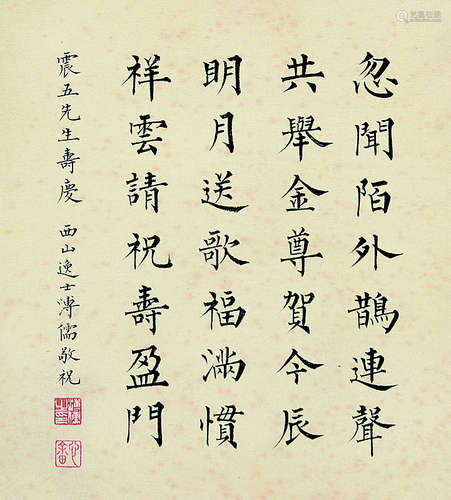 忽聞陌外鵲連聲
共舉金尊賀今辰
明月送歌福滿慣
祥雲請祝壽盈門
震五先生壽慶
西山逸士溥儒敬祝